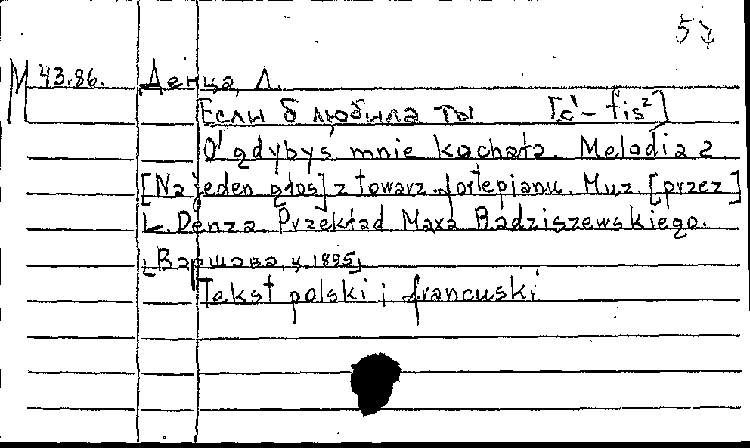 57
М 43.86. Денца, Л.
Если б любила ты [c¹ – fis²]
O! gdybyś mnie kochała. Melodia 2
[Na jeden głos] z towarz. fortepianu. Muz. [przez]
L. Denza. Przekład Maxa Radziszewskiego.
[Варшава, ц. 1895]
Tekst polski i francuski